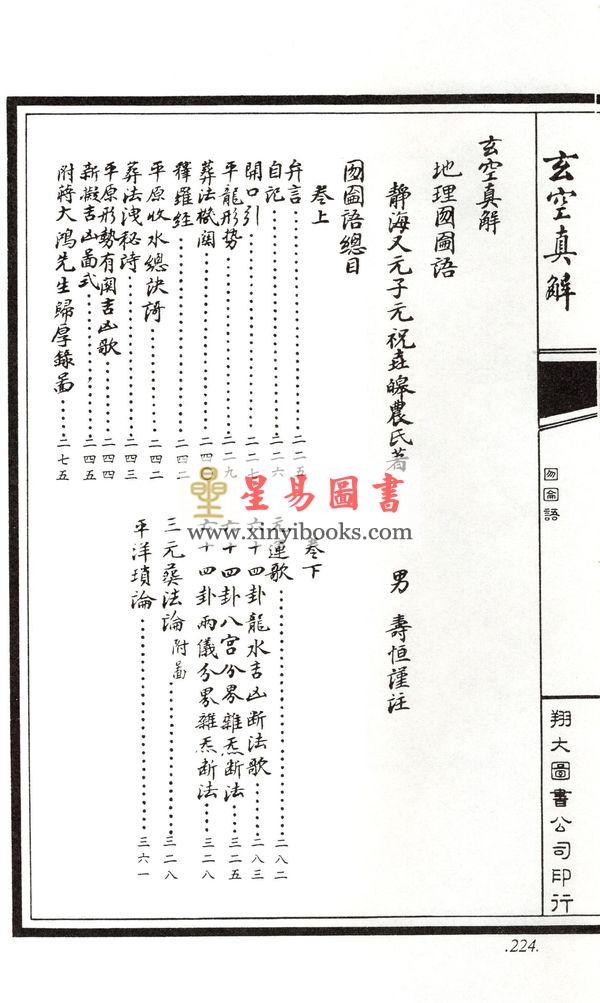 玄空真解
囫圇語
翔大圖書公司印行
玄空真解
地理囫圇語
靜海又元子元祝垚皥農氏著 男 壽恒謹註
囫圇語總目
卷上
弁言 二二五
自記 二二六
開口引 二二七
平龍形势 二二九
葬法機関 二四〇
釋羅經 二四二
平原收水總訣詩 二四二
葬法洩秘詩 二四三
平原形勢有関吉凶歌 二四四
新擬吉凶啚式 二四五
附蔣大鴻先生歸厚錄啚 二七五
卷下
元運歌 二八二
六十四卦龍水吉凶断法歌 二八三
六十四卦八宮分界雜炁断法 三二五
六十四卦兩儀分界雜炁断法 三二八
三元葬法論 附啚 三二八
平洋瑣論 三六一
星易圖書
www.xinyibooks.com
.224.